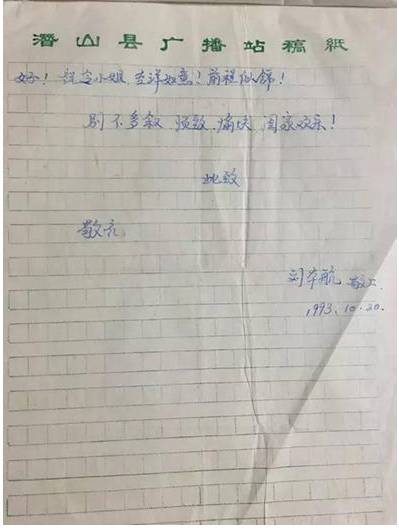 潜山县广播站稿纸
好！祝 小姐 吉祥如意！前程似锦！
别不多叙 顺致 愉快 阖家欢乐！
此致
敬礼
刘 航 敬上
1993.10.20.